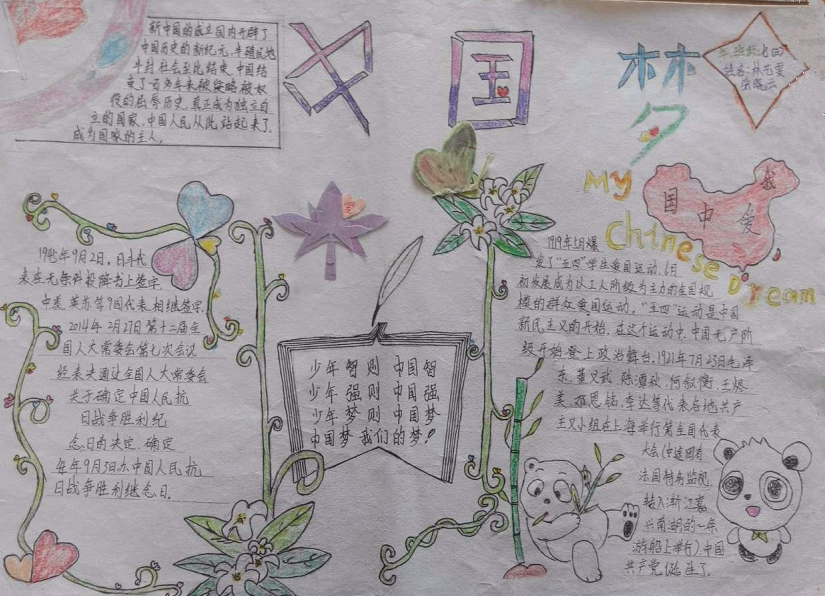 新中国的成立国内开辟了
中国历史的新纪元,半殖民地
半封社会至此结束,中国结
束了百多年来被侵略被奴
役的屈辱历史,真正成为独立自
立的国家,中国人民从此站起来了,
成为国家的主人。
中国
梦
班级:七四
姓名:林
张
My
Chinese Dream
我爱中国
1945年9月2日,日本代
表在无条件投降书上签字,
中美英苏等9国代表相继签字,
2014年2月27日第十二届全
国人大常委会第七次会议
经表决通过全国人大常委会
关于确定中国人民抗
日战争胜利纪
念日的决定,确定
每年9月3日为中国人民抗
日战争胜利继念日。
少年智则中国智
少年强则中国强
少年梦则中国梦
中国梦我们的梦!
1919年5月爆
发了“五四”学生爱国运动,6月
初发展成为以工人阶级为主力的全国规
模的群众爱国运动,“五四”运动是中国
新民主义的开始,在这个运动中,中国无产阶
级开始登上政治舞台,1921年7月23日毛泽
东、董又武、陈潭秋、何叔衡、王烬
美、邓恩铭、李达等代表各地共产
主义小组在上海举行第全国代表
大会(中途因有
法国特务监视,
转入浙江嘉
兴南湖的一条
游船上举行)中国
共产党诞生了,